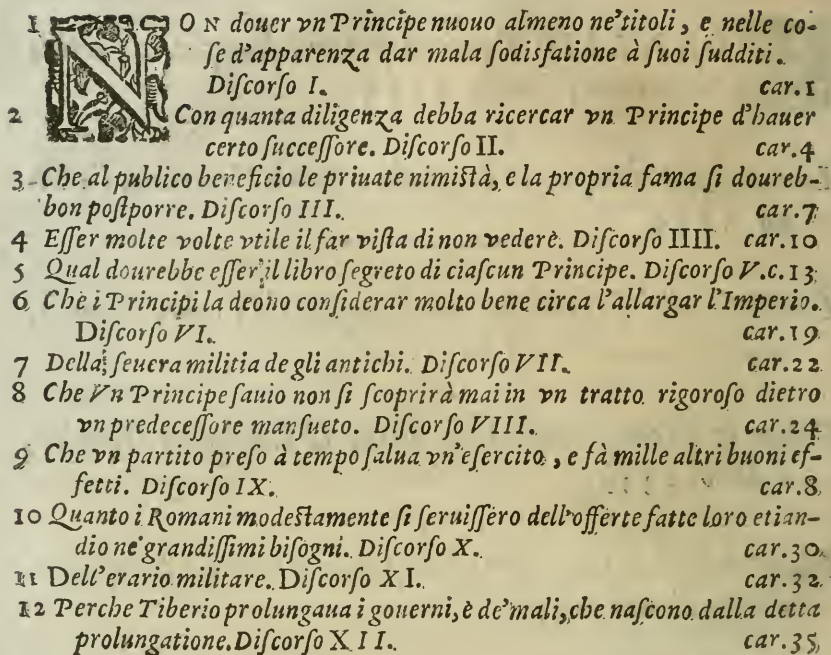 1 NON douer vn Principe nuouo almeno ne'titoli, e nelle co-
ſe d'apparenza dar mala ſodisfatione à ſuoi ſudditi.
Diſcorſo I. car.1
2 Con quanta diligenza debba ricercar vn Principe d'hauer
certo ſucceſſore. Diſcorſo II. car.4
3 Che al publico beneficio le priuate nimiſtà, e la propria fama ſi doureb-
bon poſtporre. Diſcorſo III. car.7
4 Eſſer molte volte vtile il far viſta di non vederè. Diſcorſo IIII. car.10
5 Qual dourebbe eſſer il libro ſegreto di ciaſcun Principe. Diſcorſo V.c.13
6 Che i Principi la deono conſiderar molto bene circa l'allargar l'Imperio.
Diſcorſo VI. car.19
7 Della ſeuera militia de gli antichi. Diſcorſo VII. car.22
8 Che Vn Principe ſauio non ſi ſcoprirà mai in vn tratto rigoroſo dietro
vn predeceſſore manſueto. Diſcorſo VIII. car.24
9 Che vn partito preſo à tempo ſalua vn'eſercito, e fà mille altri buoni ef-
fetti. Diſcorſo IX. car.8
10 Quanto i Romani modeſtamente ſi ſeruiſſero dell'offerte fatte loro etian-
dio ne'grandiſſimi biſogni. Diſcorſo X. car.30
11 Dell'erario militare. Diſcorſo XI. car.32
12 Perche Tiberio prolungaua i gouerni, è de'mali, che naſcono dalla detta
prolungatione. Diſcorſo XII. car.35